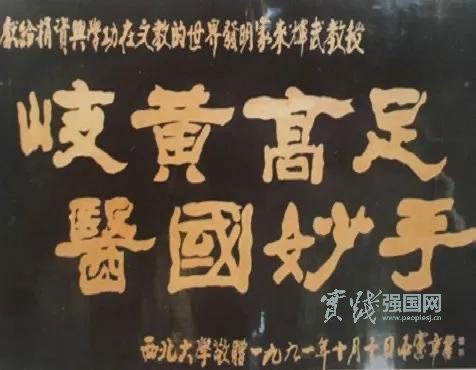 獻給捐資興學功在文教的世界發明家來輝武教授
岐黃高足
醫國妙手
西北大學敬贈一九九一年十月十日
实践强国网
www.peoplesj.cn